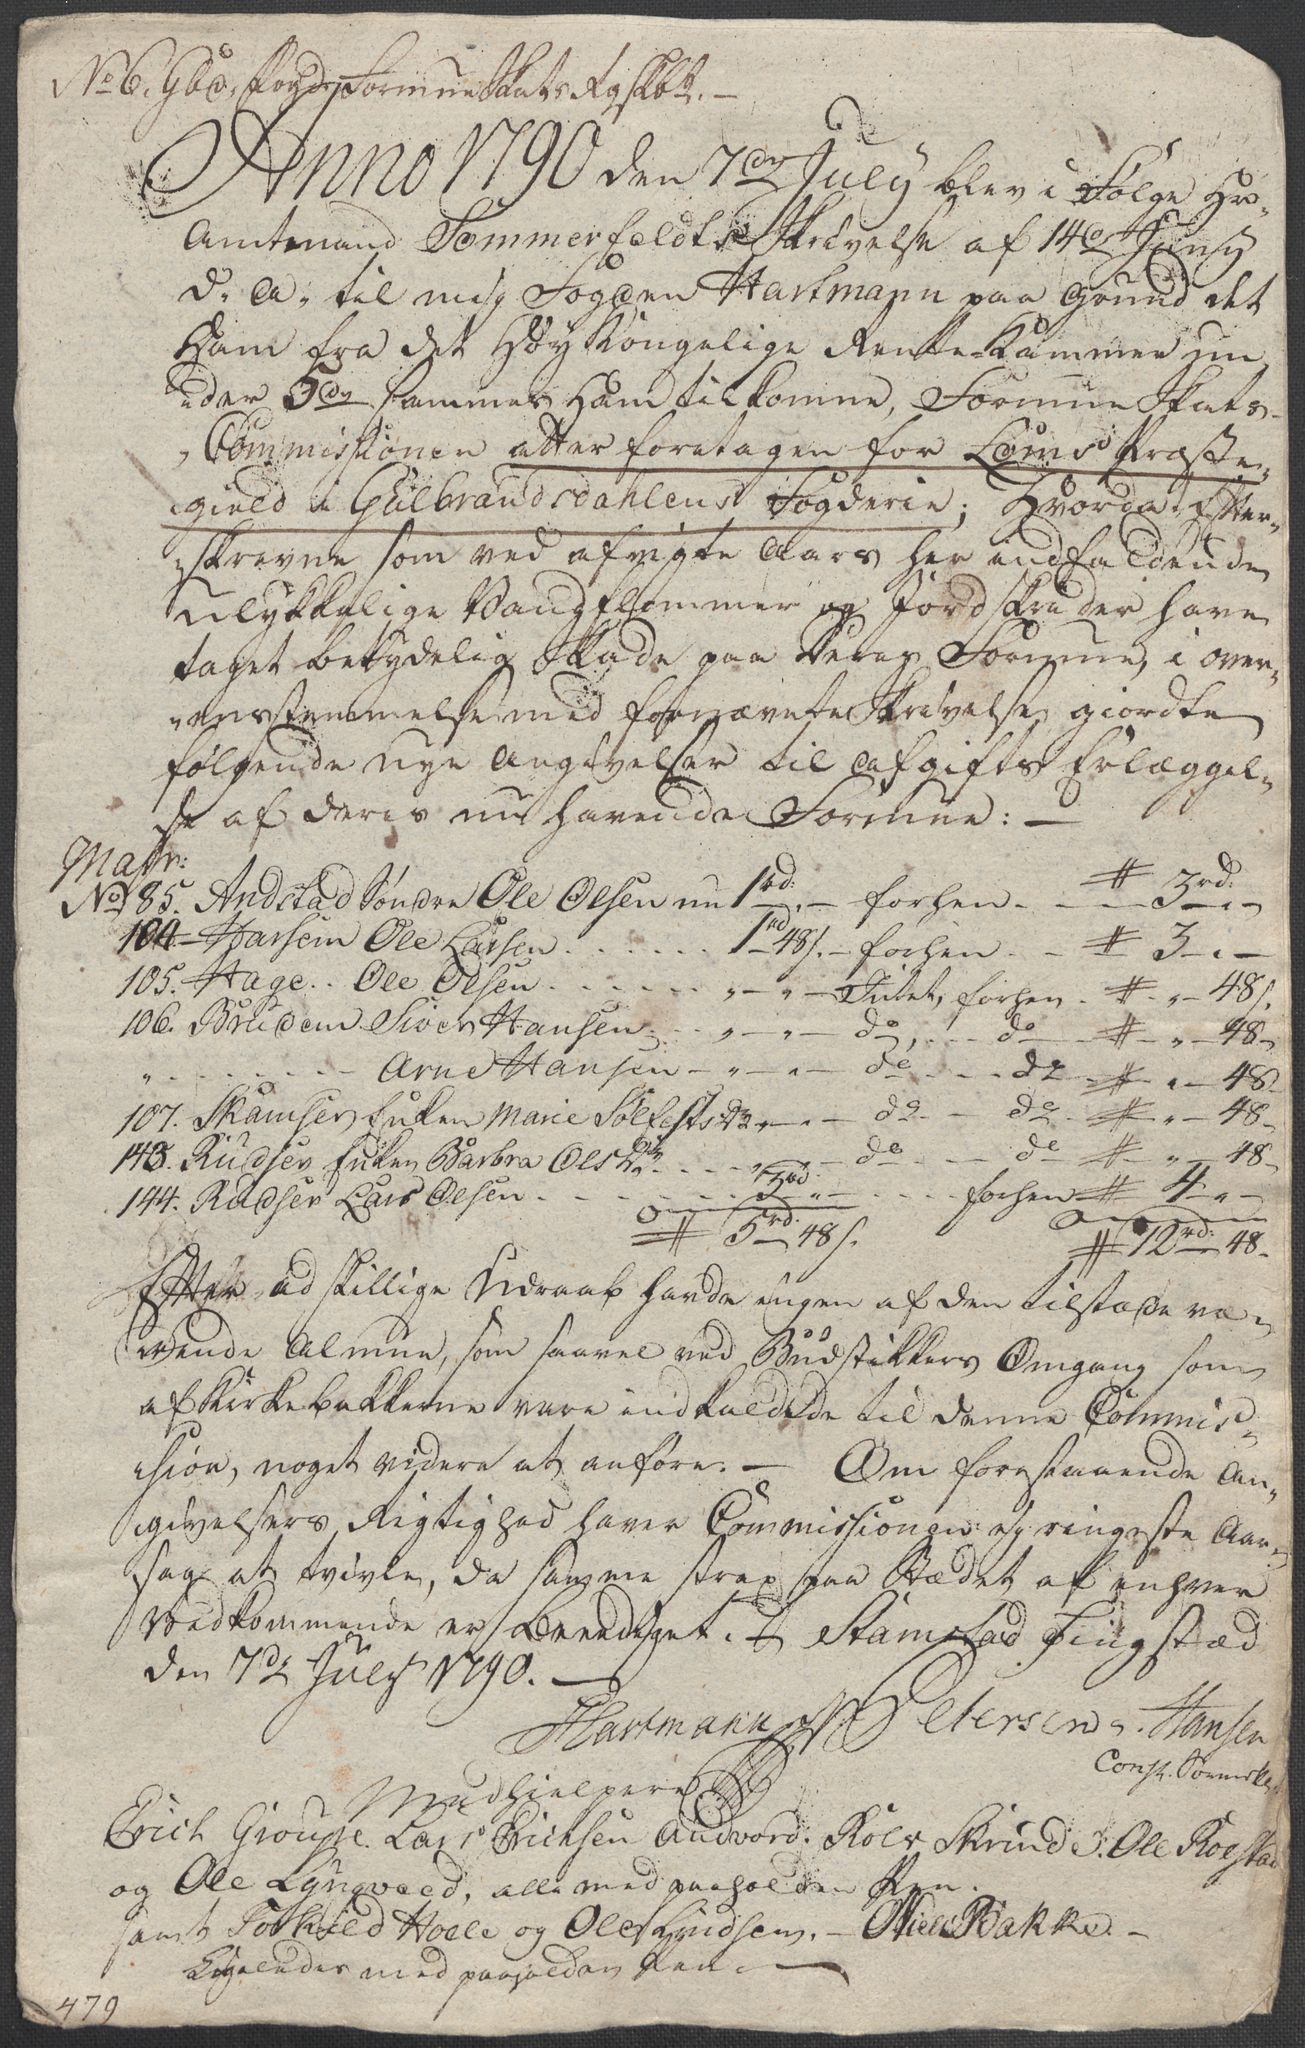 No 6. Gbd. Fogd. Formue Skats Rgskb.
Anno 1790 den 7de July blev i Følge Hr.
Amtmand Sommerfeldts Skrivelse af 14de Juny
d. A. til mig Fogden Hartmann paa Grund det
Ham fra det Høy Kongelige Rente-Kammer un
der 5de sammes Ham tilkomne, Formue Skats-
Commissionen atter foretagen for Loms Præste-
gield i Gulbrandsdahlens Fogderie; Hvorda Efter-
skrevne som ved afvigte Aars her indfaldende
ulykkelige Vandflommer og Jordskreder have
taget betydelig Skade paa deres Formue, i over-
eensstemmelse med fornævnte Skrivelse giordte
følgende nye Angivelser til Afgifts Erlæggel-
se af deres nu havende Formue: —
Matr:
No 85. Andstad Søndre Ole Olsen nu 1 rd: " — forhen - - # 3 rd: "
104 Harsem Ole Larsen . . . . 1 rd 48 s. — forhen - - # 3 - " -
105. Hage . . Ole Olsen . . . . . . " - " - Intet, forhen . # " - 48 s.
106. Brudem Siver Hansen . . " - " - do, . . . do # " - 48 -
" . . . . . . . Arne Hansen - - " - " - do . . . do # " - 48 -
107. Skamser Enken Marie Sølfests D. " - " - do - - do # " - 48 -
143. Rudser Enken Barbra Ols D. . . . " - " - do - - - do # " - 48 -
144. Rudser Lars Olsen . . . . . . . 3 rd " - . . . forhen # 4 - " -
# 5 rd: 48 s. # 12 rd: 48 -
Efter adskillige Udraab havde ingen af den tilstæde væ-
rende Almue, som saavel ved Budstikkers Omgang som
af Kirkebakkerne vare indkaldede til denne Commis-
sion, noget videre at anføre. — Om forestaaende An-
givelsers Rigtighed haver Commissionen ey ringeste Aar-
sag at tvivle, da samme strax paa Stædet af enhver
Vedkommende er beeediget. Stamstad Tingstæd
den 7de July 1790. —
Hartmann Petersen Hansen
Const. Sorenskr.
Medhielpere
Erich Grousse. Lars Erichsen Andvord. Rolv Skrinde. Ole Kolstad
og Ole Lyngved, alle med paaholden Pen.
samt Torkild Hoele og Ole Knudsen. — Niels Bakke. —
Ligeledes med paaholden Pen. —
479